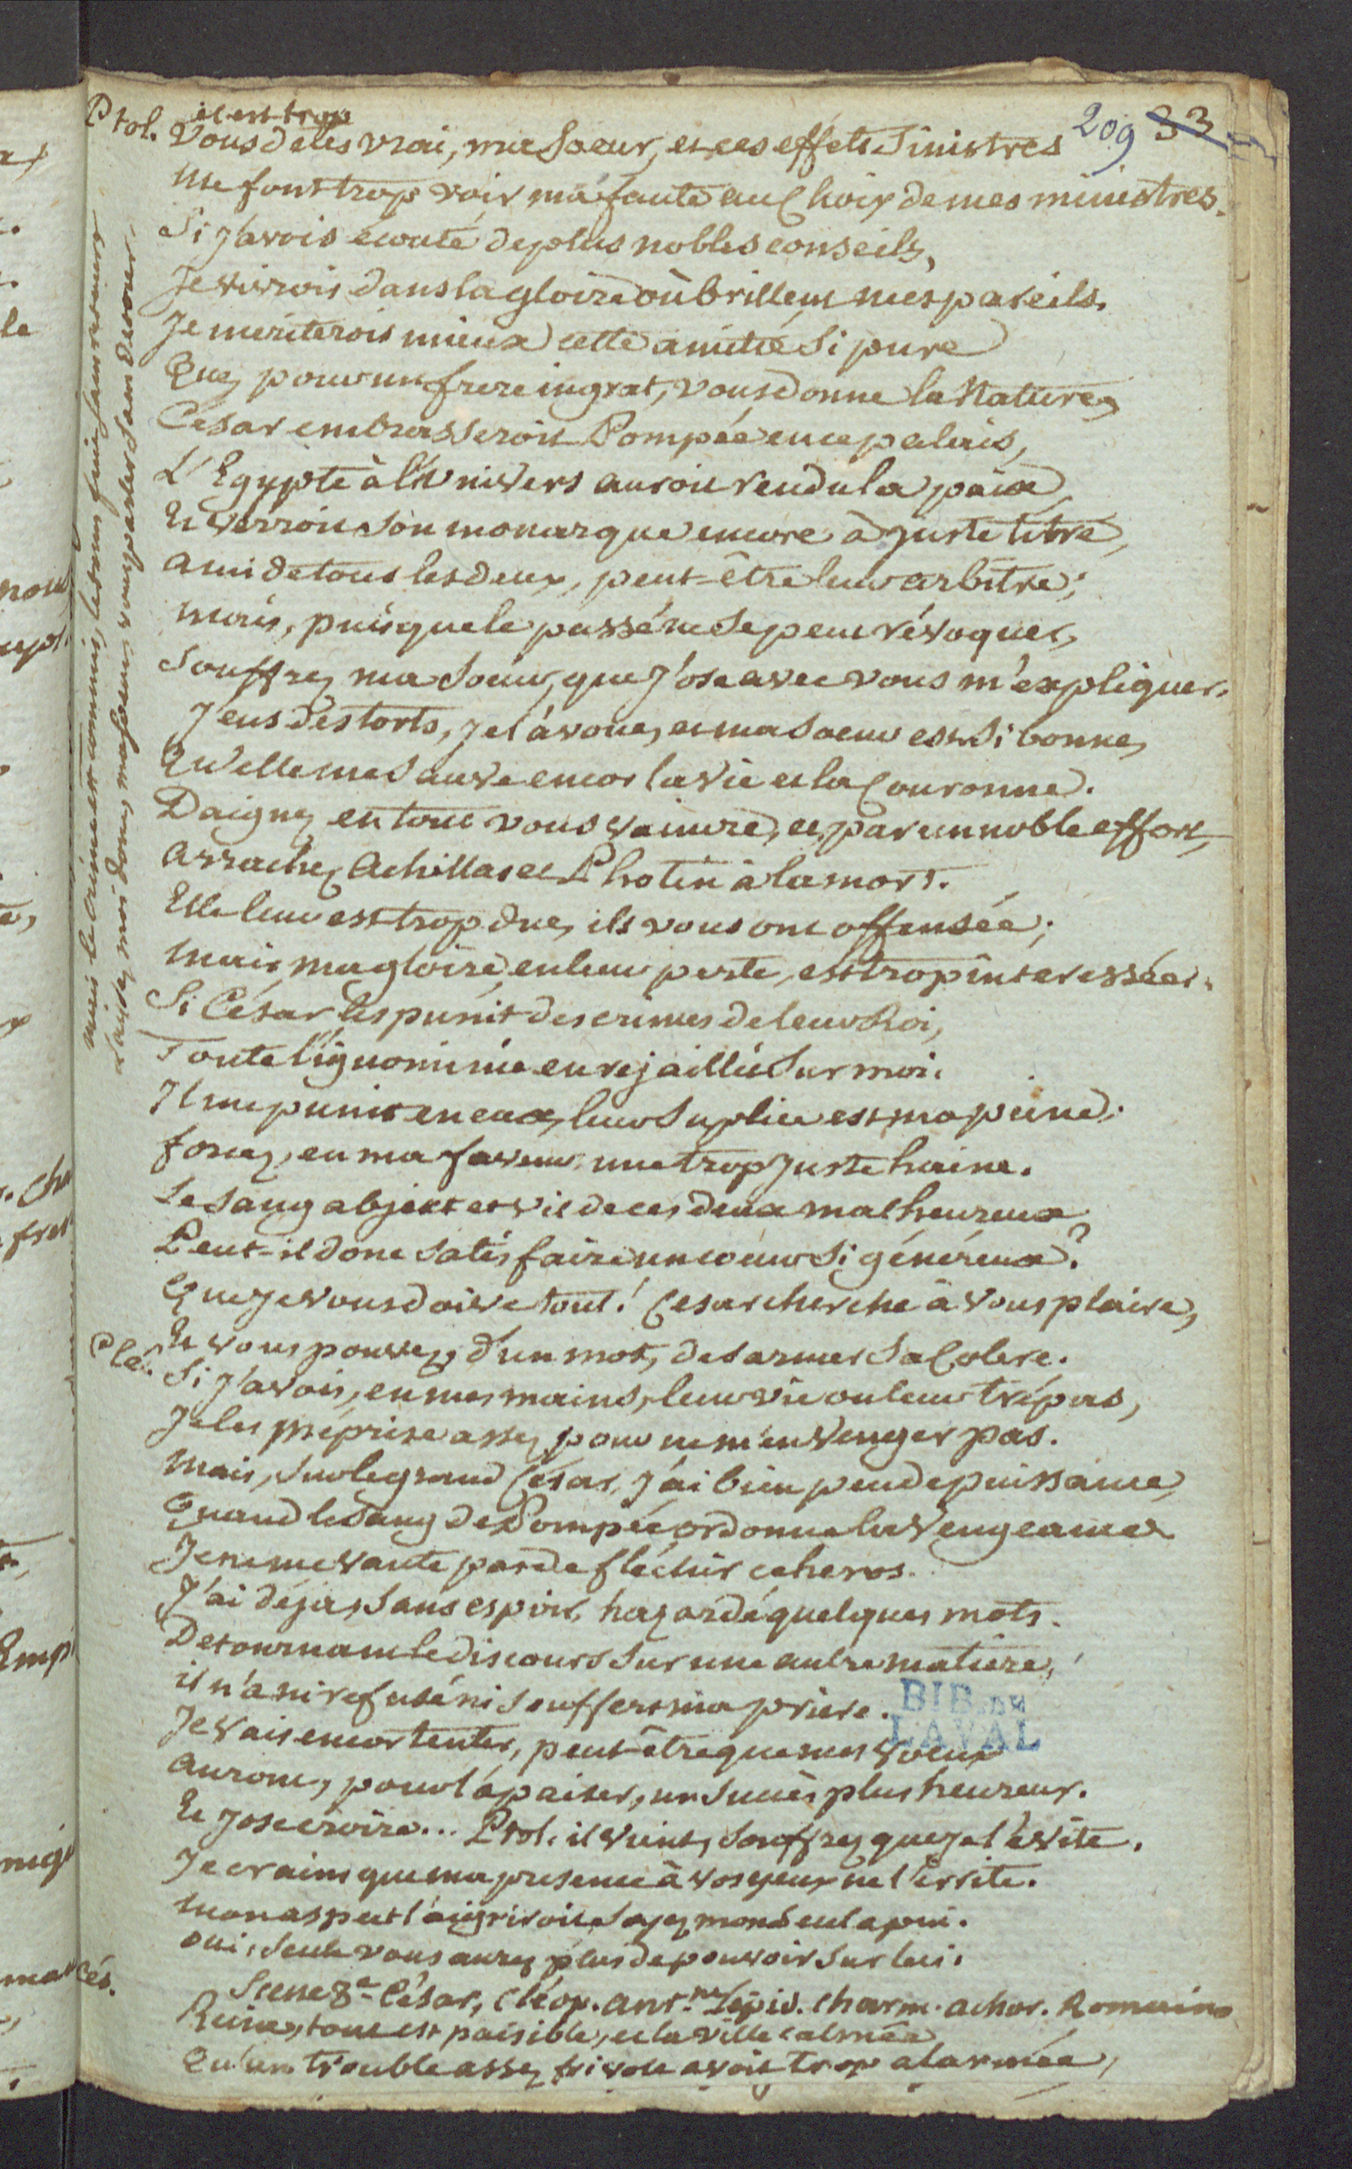 209 33
il est trop
Ptol. Vous dites vrai, ma Soeur, et ces effets Sinistres
Me font trop voir ma faute au Choix de mes ministres.
Si j'avois écouté de plus nobles conseils,
Je vivrois dans la gloire où brillent mes pareils.
Je meriterois mieux cette amitié Si pure
Que, pour un frere ingrat, vous donne la Nature,
Cesar embrasseroit Pompée en ce palais,
L'Egypte à l'Univers auroit rendu la paix,
Et verroit Son monarque encore à juste titre,
ami de tous les deux, peut-être leur arbitre;
Mais, puisque le passé ne Se peut révoquer,
Souffrez, ma Soeur, que j'ose avec vous m'expliquer.
J'eus des torts, je l'avoue, et ma Soeur est Si bonne,
Qu'elle me Sauve encor la vie et la Couronne.
Daignez en tout vous vaincre, et, par un noble effort,
arrachez Achillas et Photin à la mort.
Elle leur est trop due, ils vous ont offensée;
Mais, ma gloire, en leur perte, est trop interessée.
Si César les punit des crimes de leur Roi,
Toute l'ignominie en rejaillit Sur moi.
Il me punit en eux, leur Suplice est ma peine.
forcez, en ma faveur, une trop juste haine.
Le Sang abject et vil de ces deux malheureux
Peut-il donc Satisfaire un coeur Si généreux?
Que je vous doive tout! Cesar cherche à vous plaire,
Et vous pouvez, d'un mot, desarmer Sa Colere.
Clé. Si j'avois, en mes mains, leur vie ou leur trépas,
Je les méprise assez pour ne m'en venger pas.
Mais, Sur le grand César, j'ai bien peu de puissance,
Quand le Sang de Pompée ordonne la vengeance
Je ne me vante pas de fléchir ce heros.
J'ai déja, Sans espoir, hazardé quelques mots.
Detournant le discours Sur une autre matiere,
il n'a ni refusé ni Souffert ma priere.
Je vais encor tenter, peut-être que mes voeux
auront, pour l'apaiser, un Succès plus heureux.
Et j'ose croire... Ptol. il vient, Souffrez que je l'évite.
Je crains que ma presence à vos yeux ne l'irrite.
Mon aspect l'aigriroit Soyez mon Seul apui.
oui, Seule vous aurez plus de pouvoir Sur lui.
Scene 8e César, Cléop. Ant. Lépid. Charm. achor. Romains
Cés. Reine, tout est paisible, et la ville calmée
Qu'un trouble assez frivole avoit trop alarmée,
mais le crime est commis,
laissez moi donc, ma Soeur, vous parler Sans detour.
BIB. DE
LAVAL